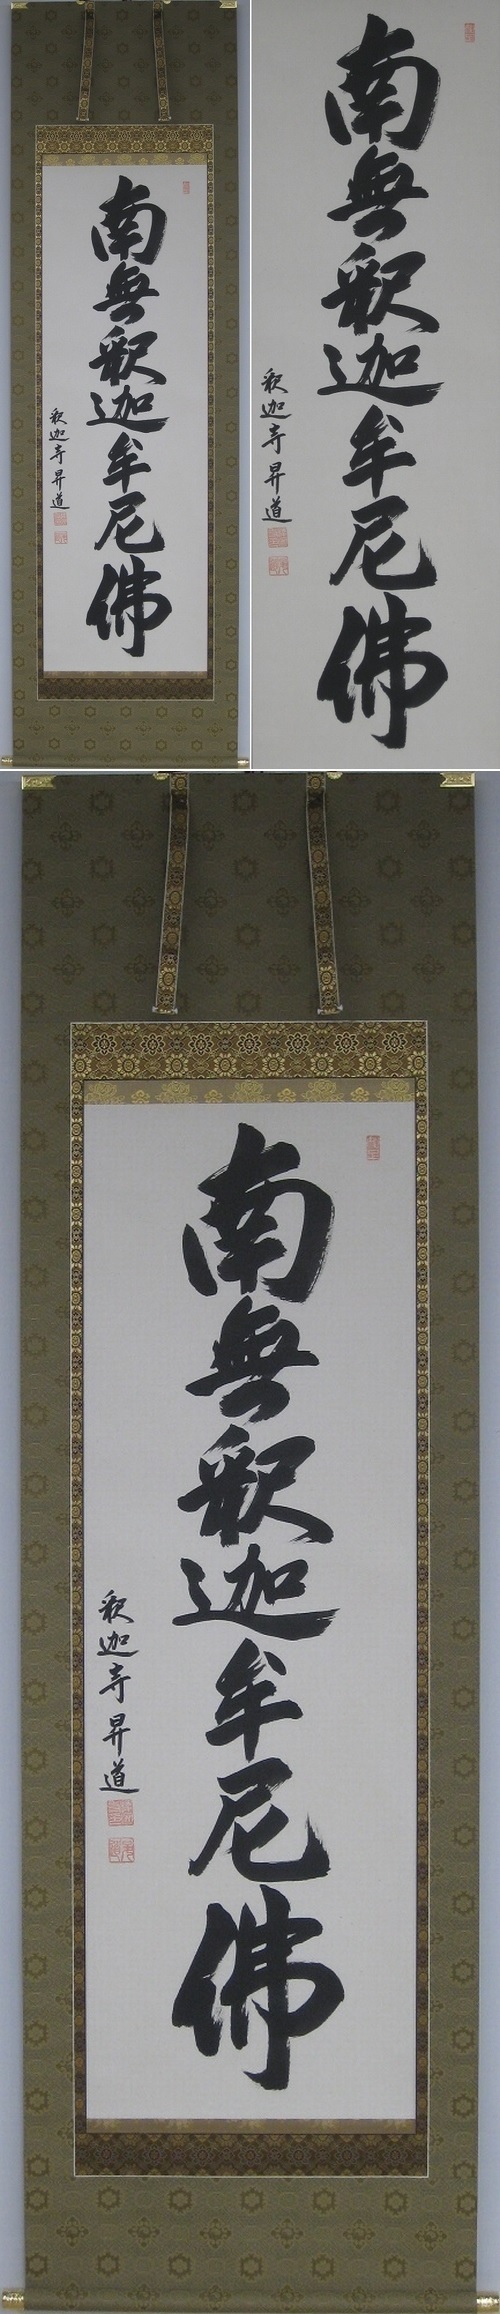 南無釈迦牟尼佛
釈迦寺昇道
南無釈迦牟尼佛
釈迦寺昇道
南無釈迦牟尼佛
釈迦寺昇道